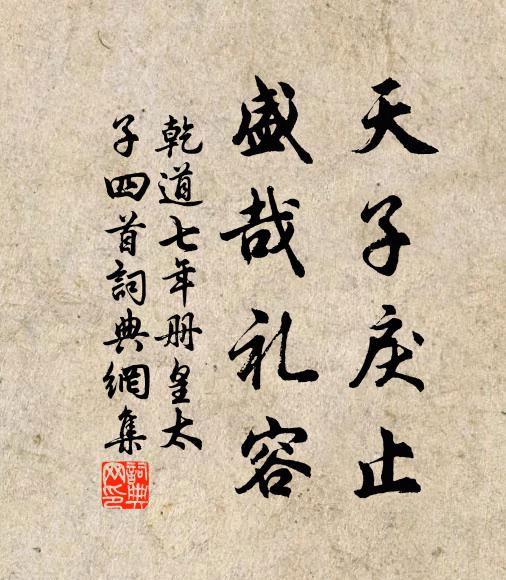 天子戾止
盛哉礼容
乾道七年册皇太
子四首詞典網集
詞典网印